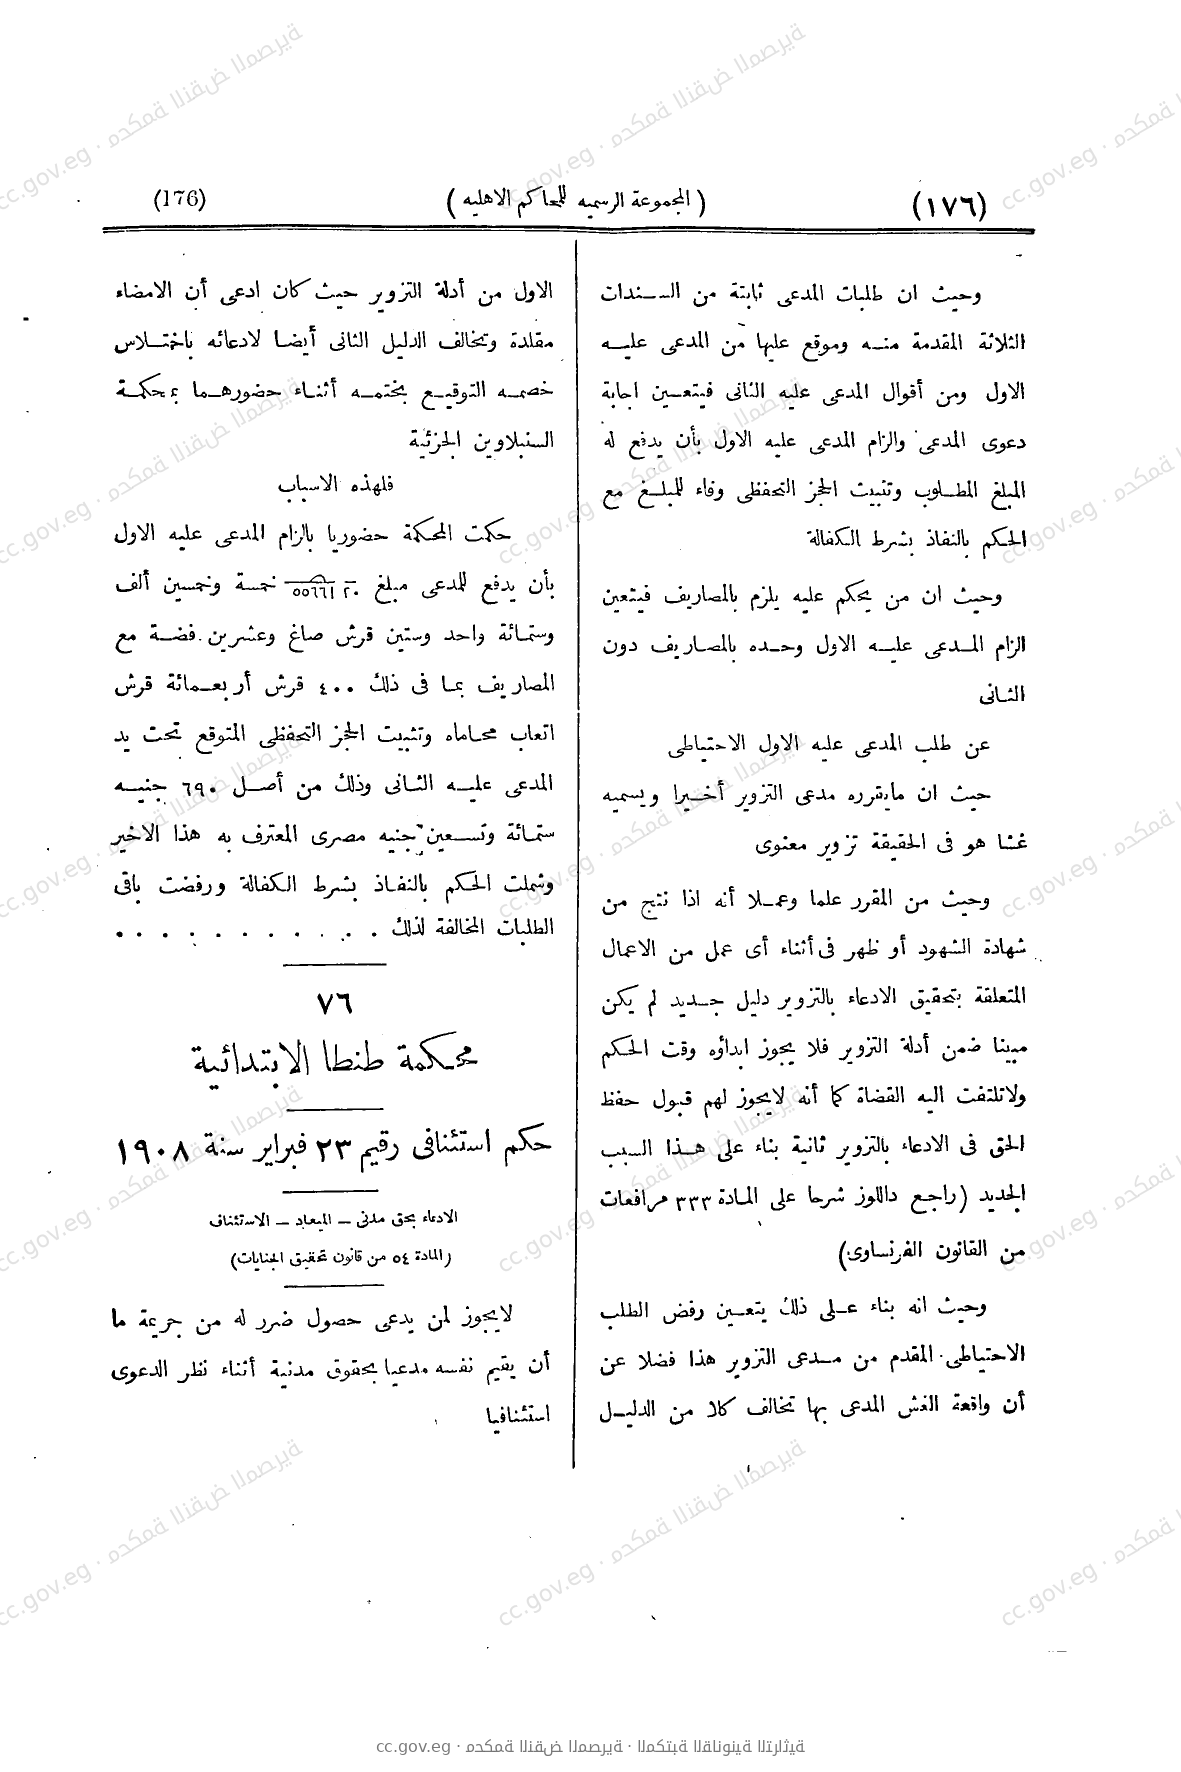 (١٧٦)
( المجموعة الرسميه للمحاكم الاهليه )
(176)
وحيث ان طلبات المدعى ثابتة من السندات
الثلاثة المقدمة منه وموقع عليها من المدعى عليه
الاول ومن أقوال المدعى عليه الثانى فيتعين اجابة
دعوى المدعى والزام المدعى عليه الاول بأن يدفع له
المبلغ المطلوب وتثبيت الحجز التحفظى وفاء للمبلغ مع
الحكم بالنفاذ بشرط الكفالة
وحيث ان من يحكم عليه يلزم بالمصاريف فيتعين
الزام المدعى عليه الاول وحده بالمصاريف دون
الثانى
عن طلب المدعى عليه الاول الاحتياطى
حيث ان مايقرره مدعى التزوير أخيرا ويسميه
غشا هو فى الحقيقة تزوير معنوى
وحيث من المقرر علما وعملا أنه اذا نتج من
شهادة الشهود أو ظهر فى أثناء أى عمل من الاعمال
المتعلقة بتحقيق الادعاء بالتزوير دليل جديد لم يكن
مبينا ضمن أدلة التزوير فلا يجوز ابداؤه وقت الحكم
ولاتلتفت اليه القضاة كما أنه لايجوز لهم قبول حفظ
الحق فى الادعاء بالتزوير ثانية بناء على هذا السبب
الجديد (راجع داللوز شرحا على المادة ٣٣٣ مرافعات
من القانون الفرنساوى)
وحيث انه بناء على ذلك يتعين رفض الطلب
الاحتياطى المقدم من مدعى التزوير هذا فضلا عن
أن واقعة الغش المدعى بها تخالف كلا من الدليل
الاول من أدلة التزوير حيث كان ادعى أن الامضاء
مقلدة وتخالف الدليل الثانى أيضا لادعائه باختلاس
خصمه التوقيع بختمه أثناء حضورهما بمحكمة
السنبلاوين الجزئية
فلهذه الاسباب
حكمت المحكمة حضوريا بالزام المدعى عليه الاول
بأن يدفع للمدعى مبلغ ٢٠ ٥٥٦٦١ خمسة وخمسين ألف
وستمائة واحد وستين قرش صاغ وعشرين فضة مع
المصاريف بما فى ذلك ٤٠٠ قرش أربعمائة قرش
اتعاب محاماه وتثبيت الحجز التحفظى المتوقع تحت يد
المدعى عليه الثانى وذلك من أصل ٦٩٠ جنيه
ستمائة وتسعين جنيه مصرى المعترف به هذا الاخير
وشملت الحكم بالنفاذ بشرط الكفالة ورفضت باقى
الطلبات المخالفة لذلك . . . . . . . . . . .
٧٦
محكمة طنطا الابتدائية
حكم استئنافى رقيم ٢٣ فبراير سنة ١٩٠٨
الادعاء بحق مدنى – الميعاد – الاستئناف
(المادة ٥٤ من قانون تحقيق الجنايات)
لايجوز لمن يدعى حصول ضرر له من جريمة ما
أن يقيم نفسه مدعيا بحقوق مدنية أثناء نظر الدعوى
استئنافيا
cc.gov.eg · محكمة النقض المصرية · المكتبة القانونية التراثية